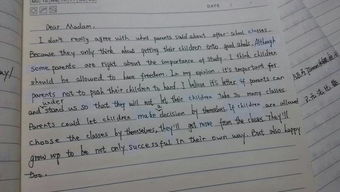 DATE
Dear Madam:
I don't really agree with what parents said about after-shool classes.
Because they only think about getting their children into good shools. Although
some parents are right about the importance of study. I think children
should be allowed to have freedom. In my opinion it's important for
parents not to push their children to hard. I believe it's better if parents can
under
and stand us so that they will not let their children take so many classes
Parents could let children make decision by themselves If children are allowed
choose the classes by themselves, they'll get more from the classes They'll
grow up to be not only successful in their own way. But also happy
too.